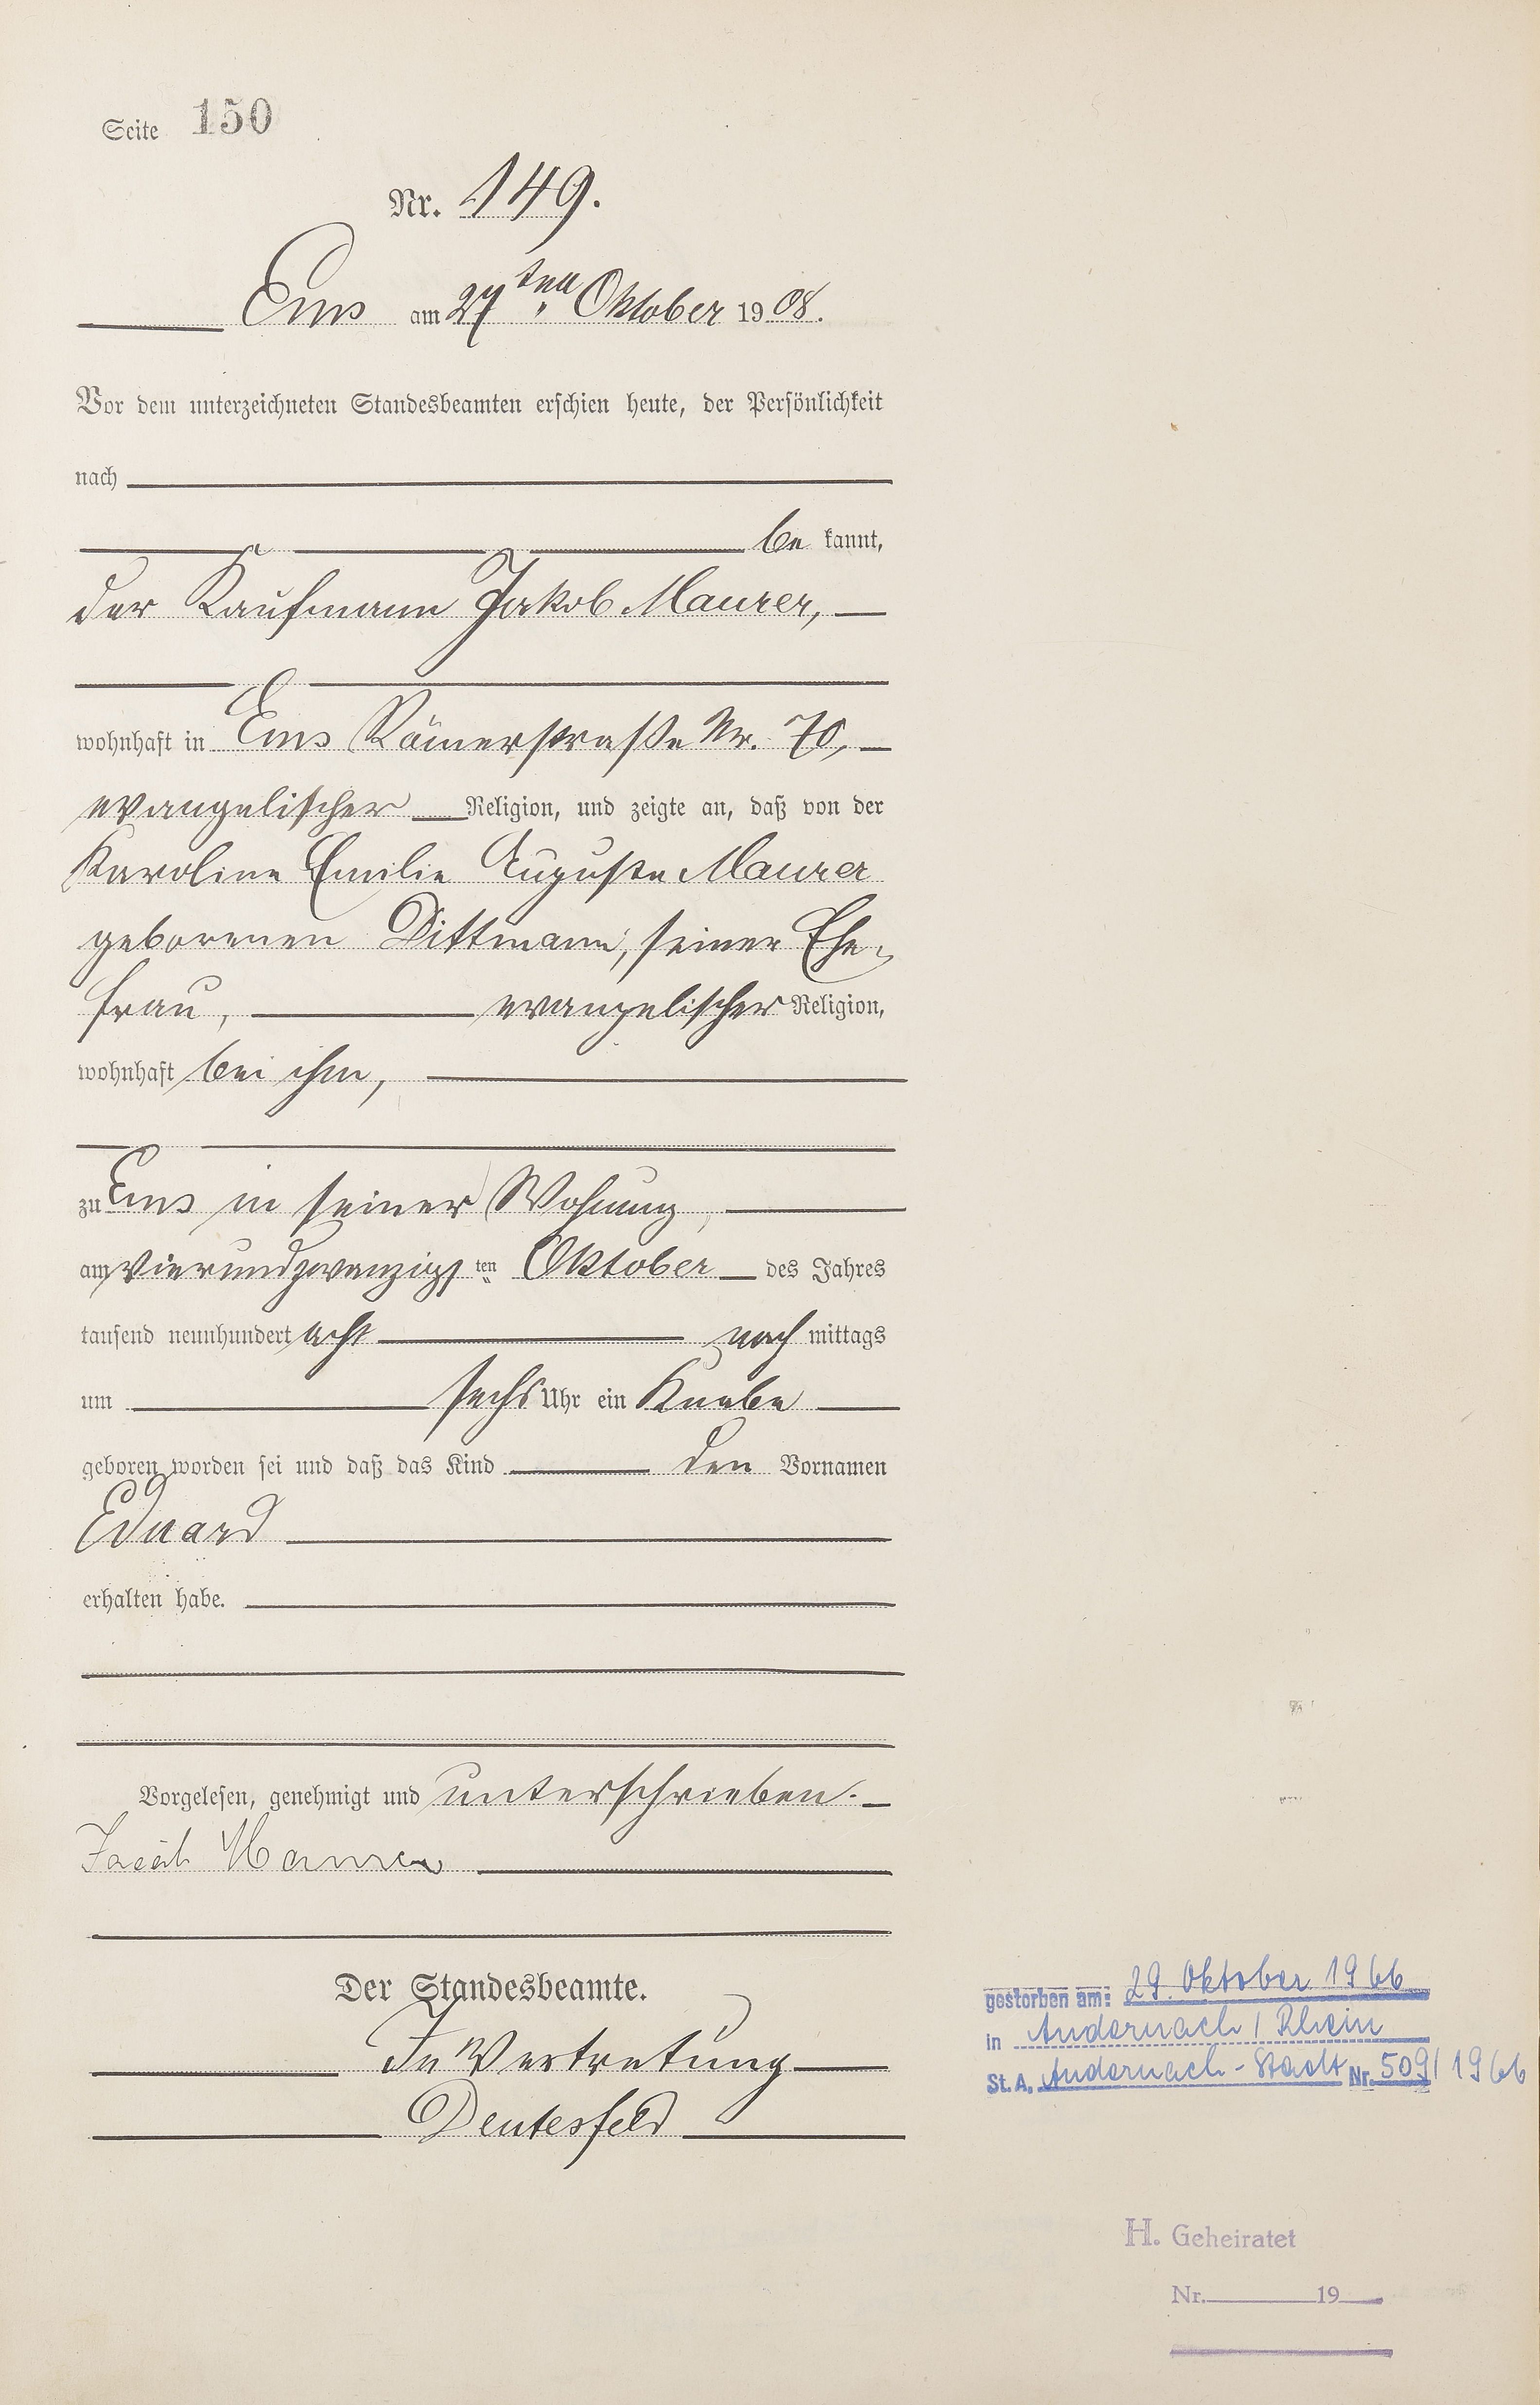 Seite 150
Nr. 149.
Ems am 27ten Oktober 1908.
Vor dem unterzeichneten Standesbeamten erschien heute, der Persönlichkeit
nach
be kannt,
der Kaufmann Jakob Maurer,
wohnhaft in Ems Römerstraße Nr. 70,
evangelischer Religion, und zeigte an, daß von der
Karoline Emilie Auguste Maurer
geborenen Dittmann, seiner Ehe-
frau, evangelischer Religion,
wohnhaft bei ihm,
zu Ems in seiner Wohnung,
am vierundzwanzigsten Oktober des Jahres
tausend neunhundert acht nach mittags
um sechs Uhr ein Knabe
geboren worden sei und daß das Kind den Vornamen
Eduard
erhalten habe.
Vorgelesen, genehmigt und unterschrieben.
Jacob Maurer
Der Standesbeamte.
In Vertretung
Deutesfeld
gestorben am: 29. Oktober 1966
in Andernach / Rhein
St. A. Andernach-Stadt Nr. 509/1966
H. Geheiratet
Nr. 19